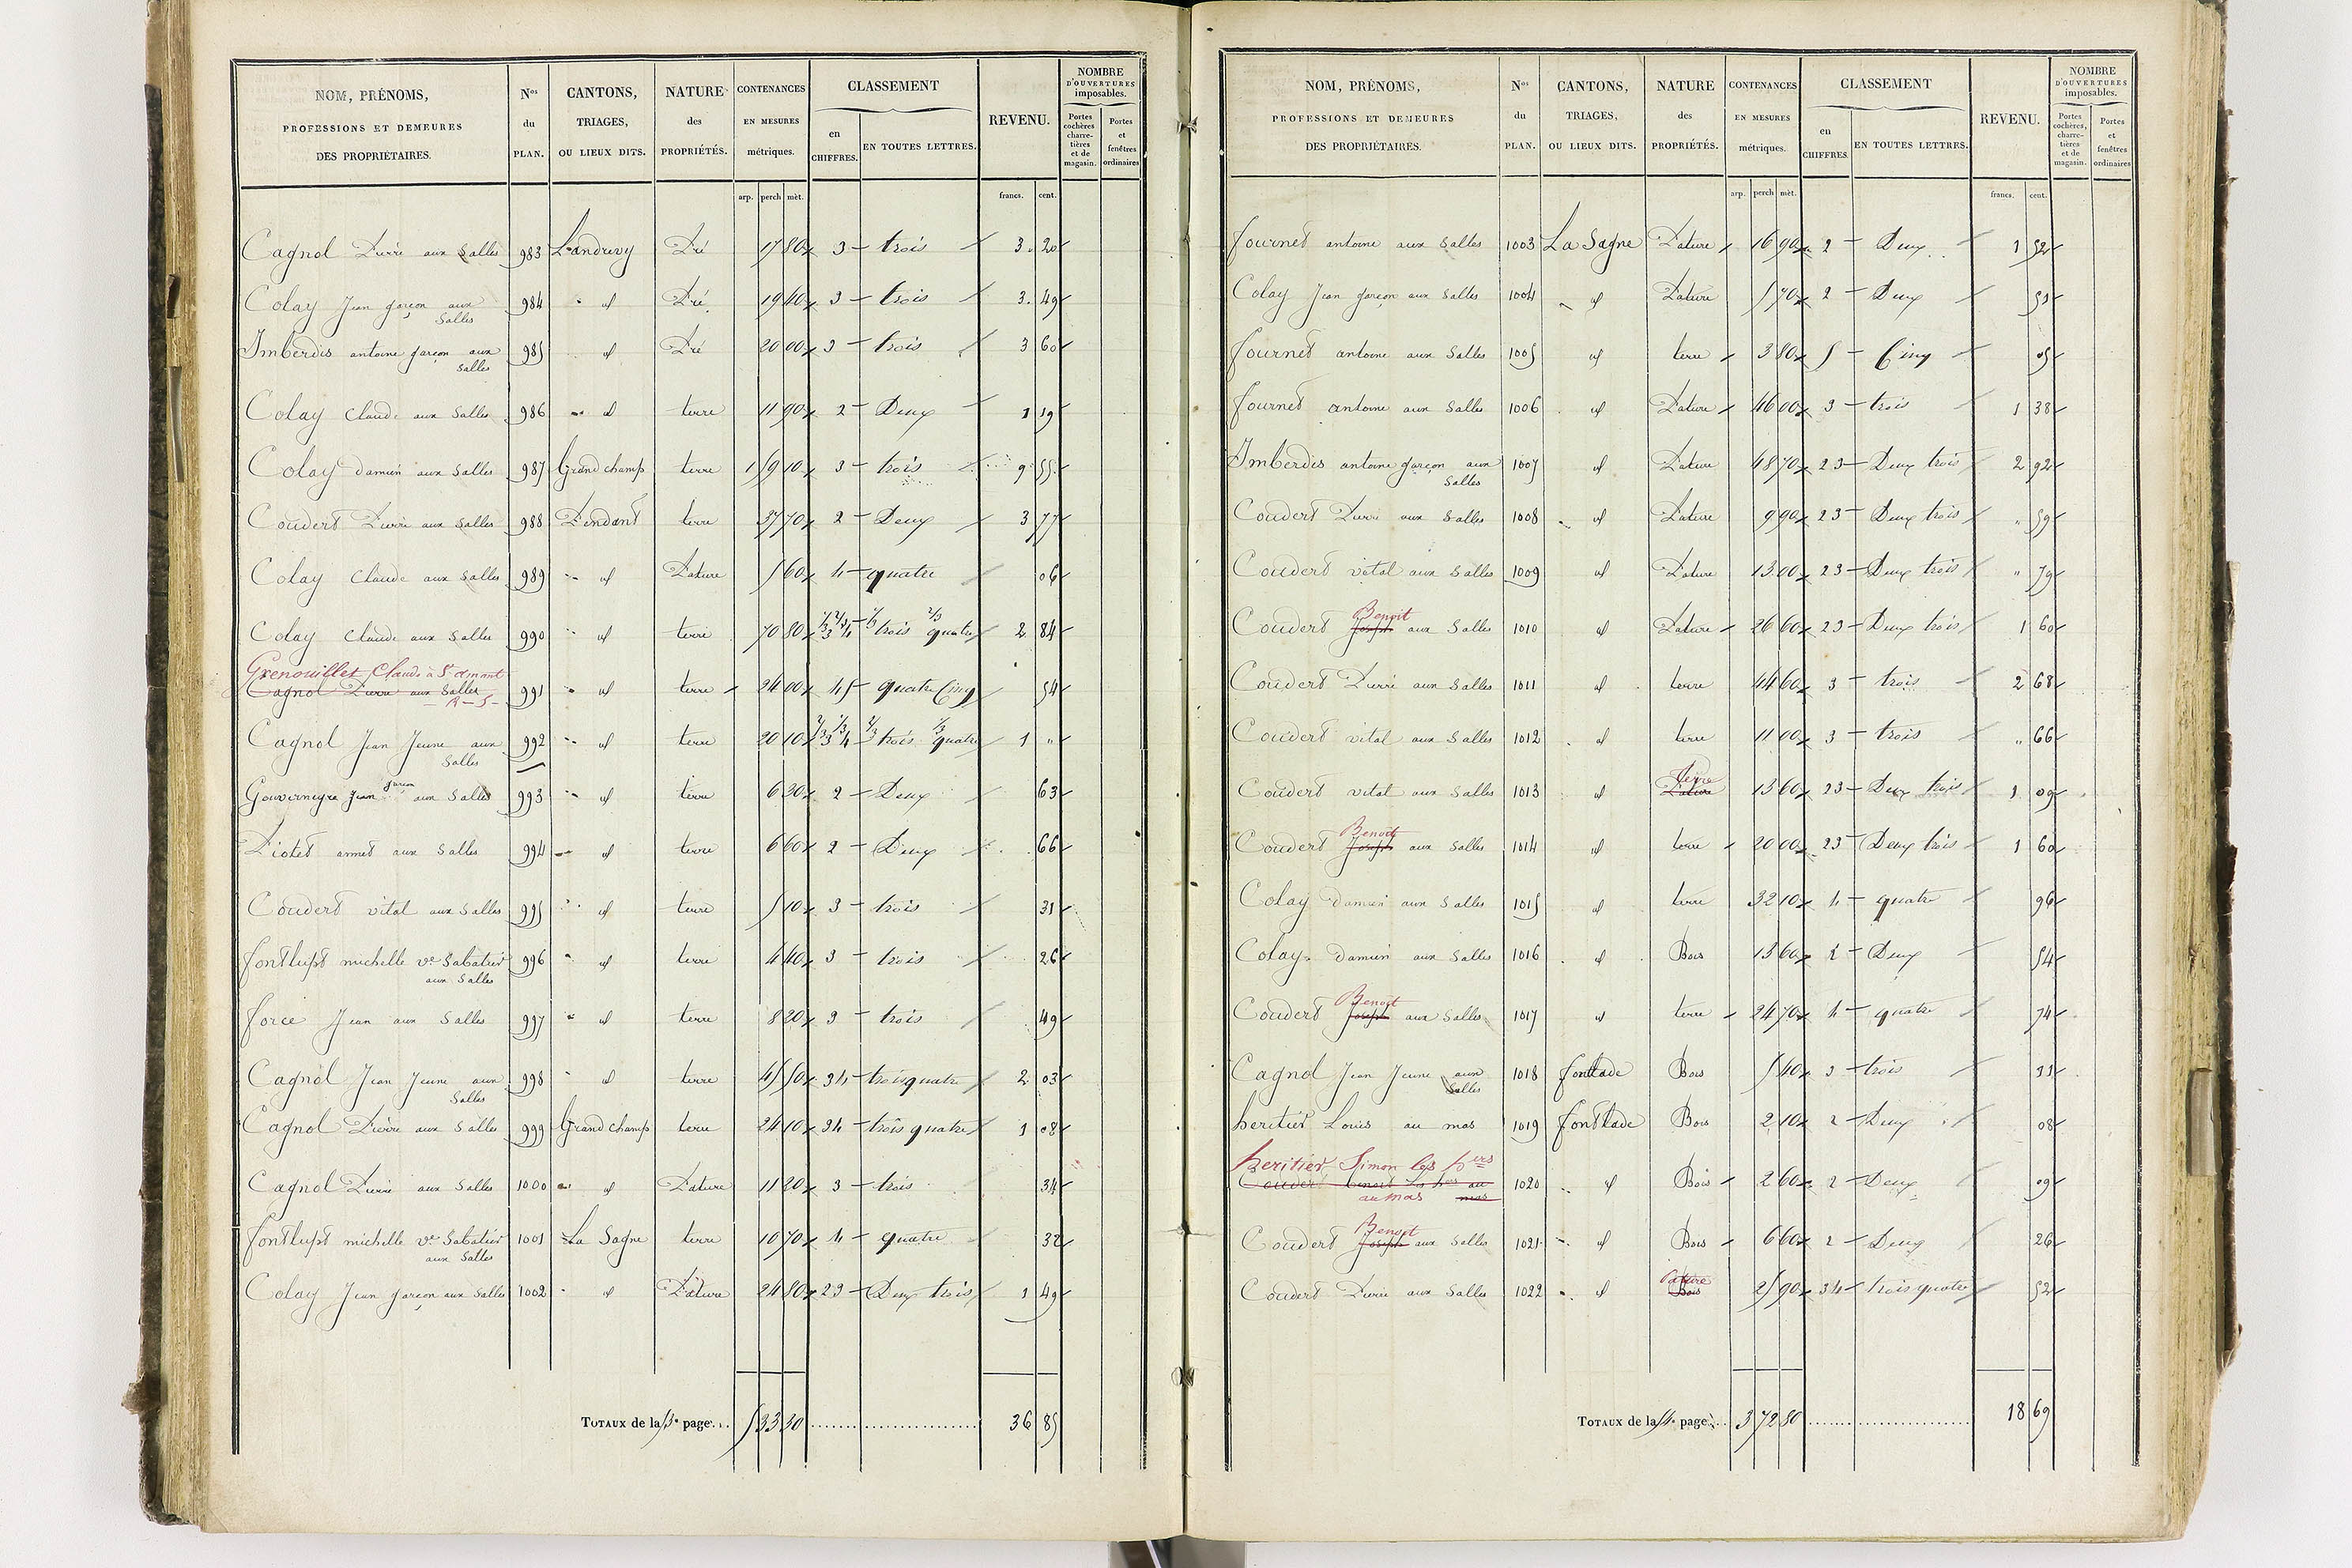 NOM, PRÉNOMS, PROFESSIONS ET DEMEURES DES PROPRIÉTAIRES. Nos du PLAN. CANTONS, TRIAGES, OU LIEUX DITS. NATURE des PROPRIÉTÉS. CONTENANCES EN MESURES métriques. CLASSEMENT en CHIFFRES. EN TOUTES LETTRES. REVENU. NOMBRE D'OUVERTURES imposables. Portes cochères charretières et de magasin. Portes et fenêtres ordinaires
arp. perch mèt. francs. cent.
Cagnol Pierre aux Salles 983 Landrevy Pré 17 80 3 trois 3 20
Colay Jean garçon aux Salles 984 id Pré 19 40 3 trois 3 49
Imberdis antoine garçon aux Salles 985 id Pré 20 00 3 trois 3 60
Colay Claude aux Salles 986 id terre 11 90 2 Deux 1 19
Colay damien aux Salles 987 Grand champ terre 1 59 10 3 trois 9 55
Coudert Pierre aux Salles 988 Pendant terre 37 70 2 Deux 3 77
Colay Claude aux Salles 989 id Pature 5 60 4 quatre 06
Colay Claude aux Salles 990 id terre 70 80 1/3 2/3 3 4 1/3 trois 2/3 quatre 2 84
Grenouillet Claude à St amant
Cagnol Pierre aux Salles R-S- 991 id terre 24 00 45 quatre Cinq 54
Cagnol Jean Jeune aux Salles 992 id terre 20 10 2/3 1/3 3 4 2/3 trois 1/3 quatre 1 "
Gouverneyre Jean garçon aux Salles 993 id terre 6 30 2 Deux 63
Piotet annet aux Salles 994 id terre 6 60 2 Deux 66
Coudert vital aux Salles 995 id terre 5 10 3 trois 31
fontlupt michelle ve Sabatier aux Salles 996 id terre 4 40 3 trois 26
force Jean aux Salles 997 id terre 8 20 3 trois 49
Cagnol Jean Jeune aux Salles 998 id terre 45 50 34 trois quatre 2 03
Cagnol Pierre aux Salles 999 Grand champ terre 24 10 34 trois quatre 1 08
Cagnol Pierre aux Salles 1000 id Pature 11 20 3 trois 34
fontlupt michelle ve Sabatier aux Salles 1001 La Sagne terre 10 70 4 quatre 32
Colay Jean garçon aux Salles 1002 id Pature 24 80 23 Deux trois 1 49
TOTAUX de la 3e page... 5 33 30 36 85
NOM, PRÉNOMS, PROFESSIONS ET DEMEURES DES PROPRIÉTAIRES. Nos du PLAN. CANTONS, TRIAGES, OU LIEUX DITS. NATURE des PROPRIÉTÉS. CONTENANCES EN MESURES métriques. CLASSEMENT en CHIFFRES. EN TOUTES LETTRES. REVENU. NOMBRE D'OUVERTURES imposables. Portes cochères, charretières et de magasin. Portes et fenêtres ordinaires
arp. perch mèt. francs. cent.
fournet antoine aux Salles 1003 La Sagne Pature 16 90 2 Deux 1 52
Colay Jean garçon aux Salles 1004 id Pature 5 70 2 Deux 51
fournet antoine aux Salles 1005 id terre 3 80 5 Cinq 05
fournet antoine aux Salles 1006 id Pature 46 00 3 trois 1 38
Imberdis antoine garçon aux Salles 1007 id Pature 48 70 23 Deux trois 2 92
Coudert Pierre aux Salles 1008 id Pature 9 90 23 Deux trois " 59
Coudert vital aux Salles 1009 id Pature 13 00 23 Deux trois " 79
Coudert Joseph Benoit aux Salles 1010 id Pature 26 60 23 Deux trois 1 60
Coudert Pierre aux Salles 1011 id terre 44 60 3 trois 2 68
Coudert vital aux Salles 1012 id terre 11 00 3 trois " 66
Coudert vital aux Salles 1013 id Pature Terre 13 60 23 Deux trois 1 09
Coudert Joseph Benoit aux Salles 1014 id terre 20 00 23 Deux trois 1 60
Colay Damien aux Salles 1015 id terre 32 10 4 quatre 96
Colay Damien aux Salles 1016 id Bois 13 60 2 Deux 54
Coudert Joseph Benoit aux Salles 1017 id terre 24 70 4 quatre 74
Cagnol Jean Jeune aux Salles 1018 fontlade Bois 5 40 3 trois 11
heritier Louis au mas 1019 fontlade Bois 2 10 2 Deux 08
heritier Simon les hers au mas
Coudert benoit Les hers au mas 1020 id Bois 2 60 2 Deux 09
Coudert Joseph Benoit aux Salles 1021 id Bois 6 60 2 Deux 26
Coudert Pierre aux Salles 1022 id Bois Pature 25 90 34 trois quatre 52
TOTAUX de la 4e page... 3 72 80 18 69